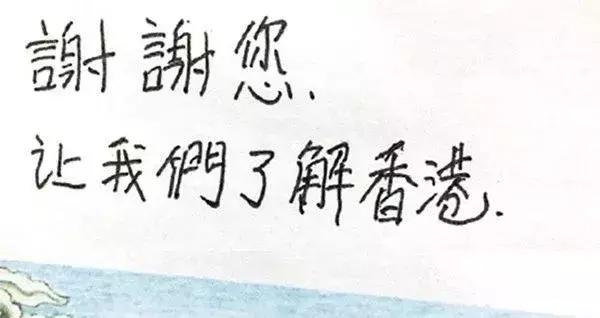 謝謝您.
让我們了解香港.